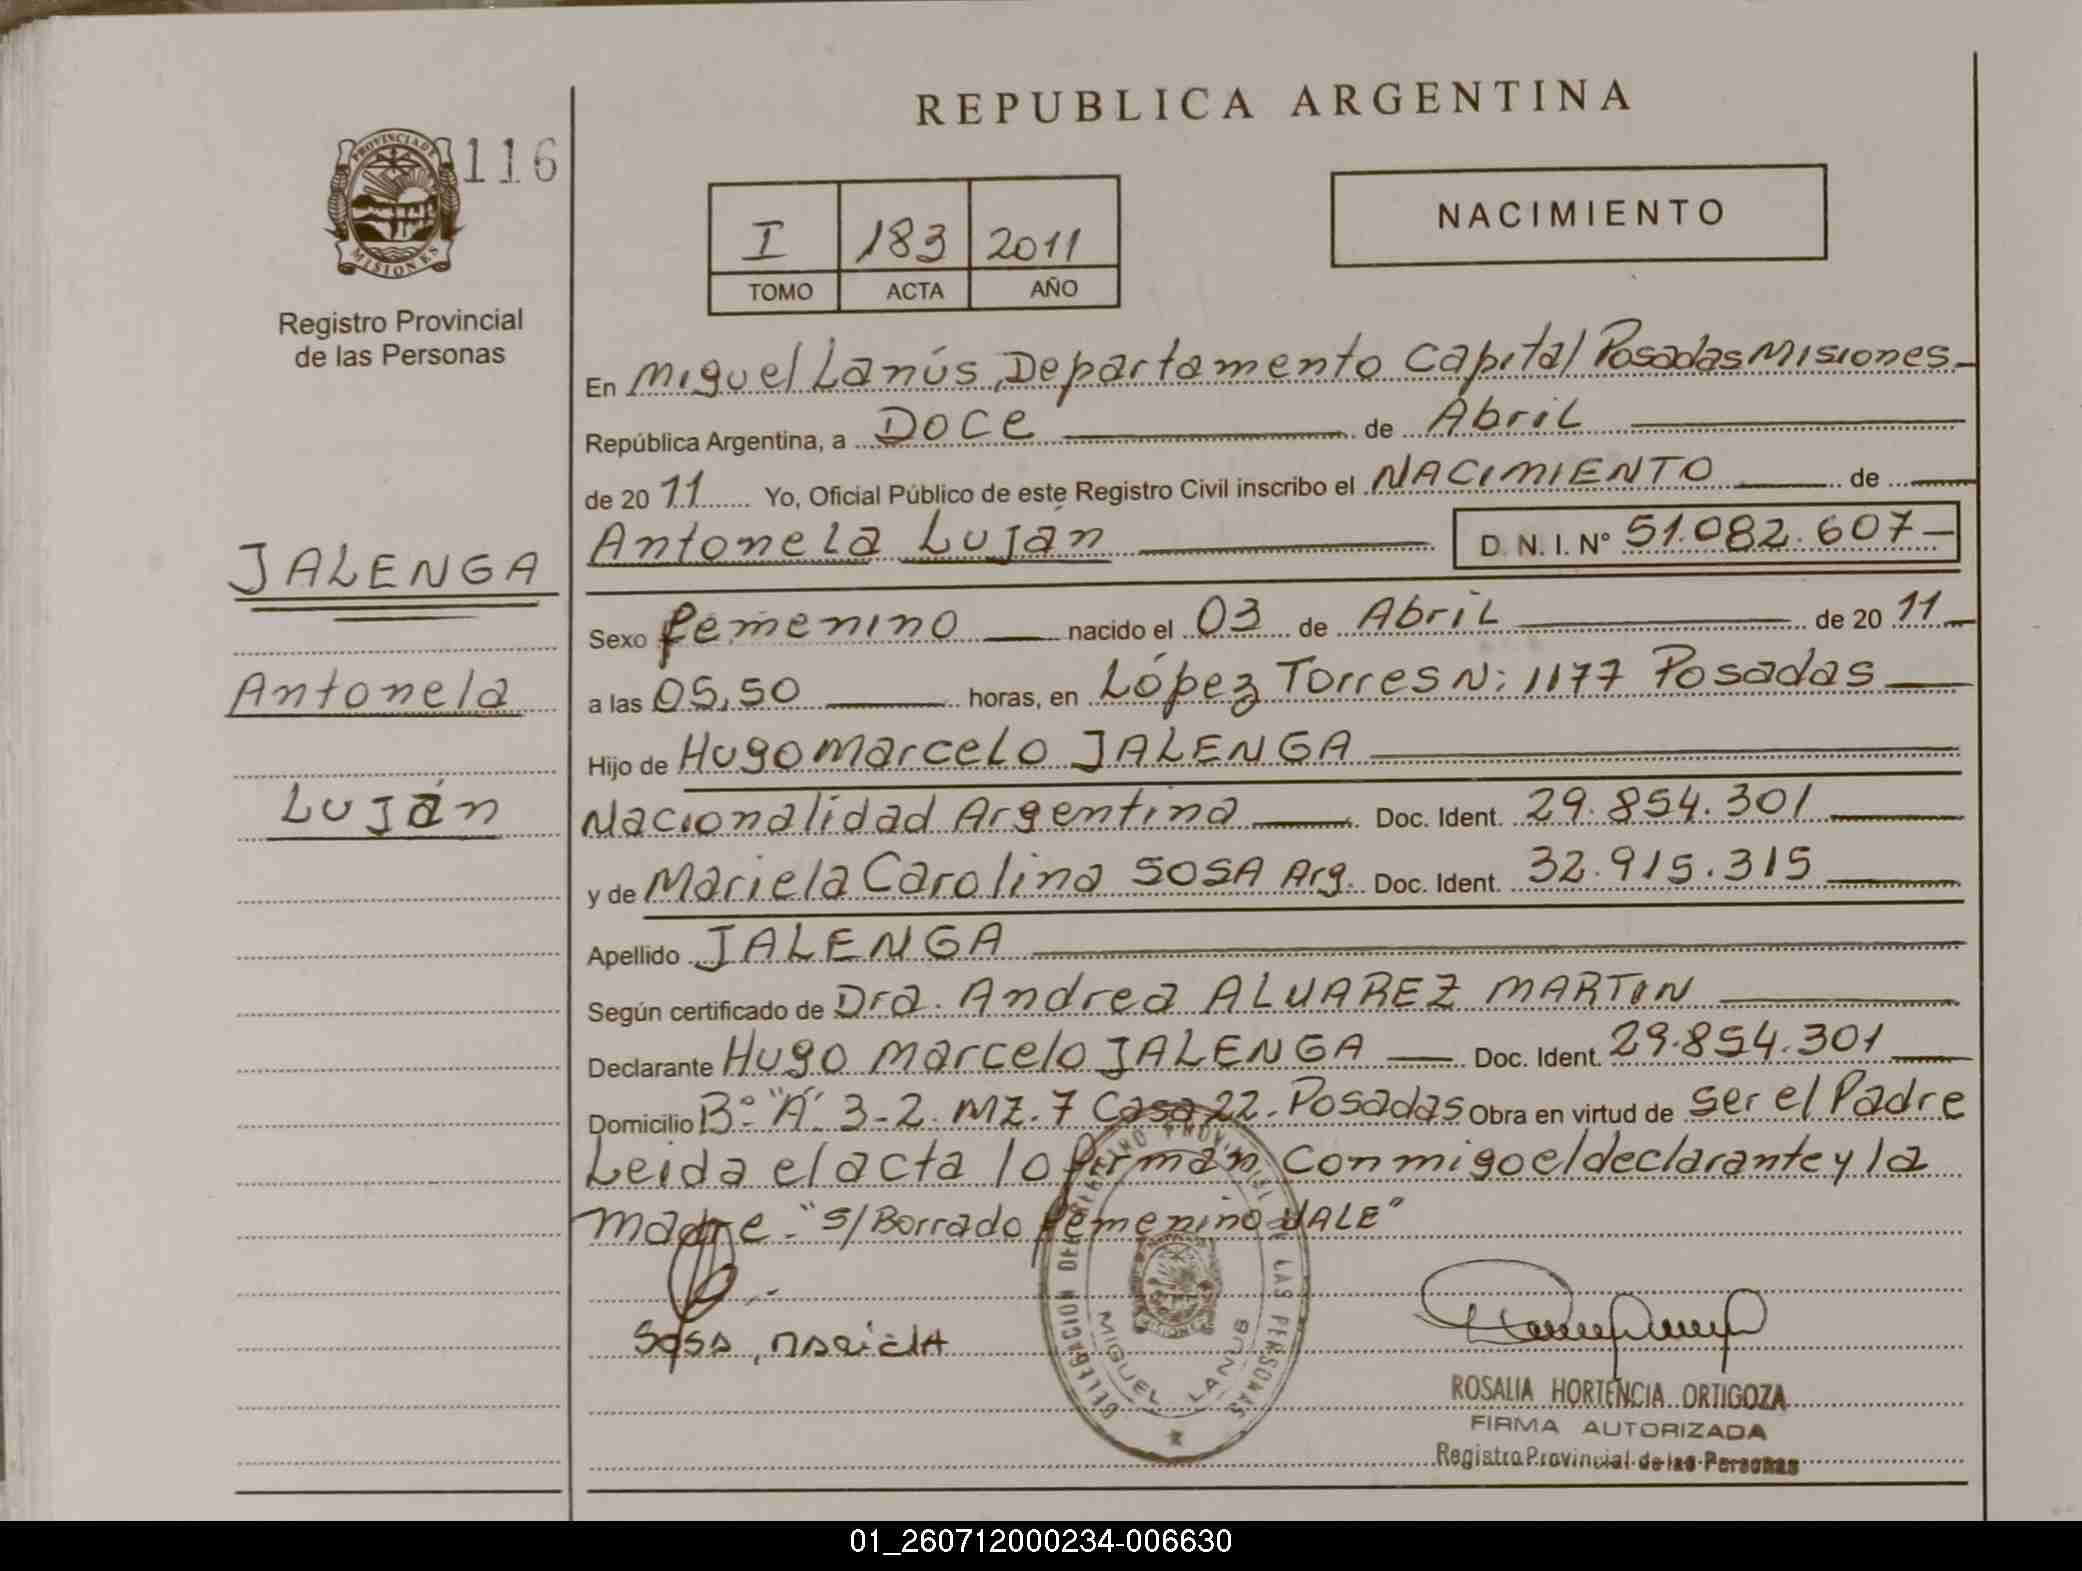 REPUBLICA ARGENTINA
PROVINCIA DE
MISIONES
116
Registro Provincial
de las Personas
I 183 2011
TOMO ACTA AÑO
NACIMIENTO
JALENGA
Antonela
Luján
En Miguel Lanús, Departamento Capital Posadas Misiones
República Argentina, a Doce de Abril
de 2011 Yo, Oficial Público de este Registro Civil inscribo el NACIMIENTO de
Antonela Luján D. N. I. N° 51.082.607
Sexo femenino nacido el 03 de Abril de 2011
a las 05,50 horas, en López Torres N: 1177 Posadas
Hijo de Hugo Marcelo JALENGA
Nacionalidad Argentina Doc. Ident. 29.854.301
y de Mariela Carolina SOSA Arg. Doc. Ident. 32.915.315
Apellido JALENGA
Según certificado de Dra. Andrea ALVAREZ MARTIN
Declarante Hugo Marcelo JALENGA Doc. Ident. 29.854.301
Domicilio B° "A" 3-2 MZ. 7 Casa 22. Posadas Obra en virtud de ser el Padre
Leida el acta lo firman conmigo el declarante y la
madre. "S/Borrado femenino VALE"
Sosa, Mariela
DELEGACION DEL REGISTRO PROVINCIAL DE LAS PERSONAS
MIGUEL LANUS
ROSALIA HORTENCIA ORTIGOZA
FIRMA AUTORIZADA
Registro Provincial de las Personas
01_260712000234-006630